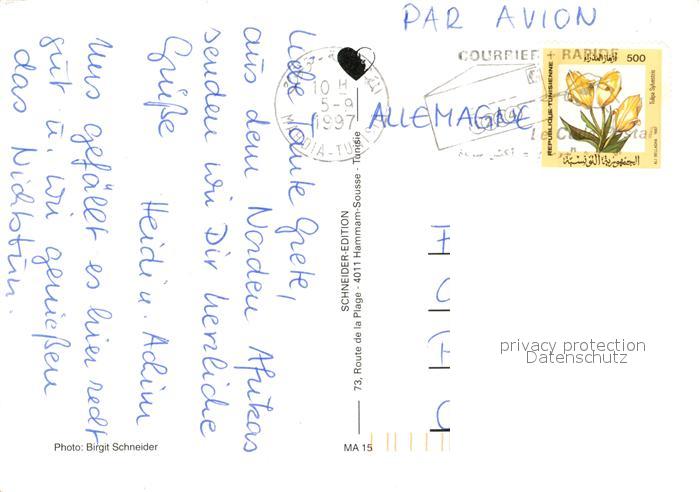 PAR AVION
COURRIER + RAPIDE
10 H
5-9
1997
MAHDIA-TUNISIE
ALLEMAGNE
REPUBLIQUE TUNISIENNE
500
Tulipa Sylvestris
الجمهورية التونسية
Liebe Tante Grete,
aus dem Norden Afrikas
senden wir Dir herzliche
Grüße Heidi u. Achim
Uns gefällt es hier recht
gut u. wir genießen
das Nichtstun.
SCHNEIDER-EDITION
73, Route de la Plage - 4011 Hammam-Sousse - Tunisie
Photo: Birgit Schneider
MA 15
privacy protection
Datenschutz